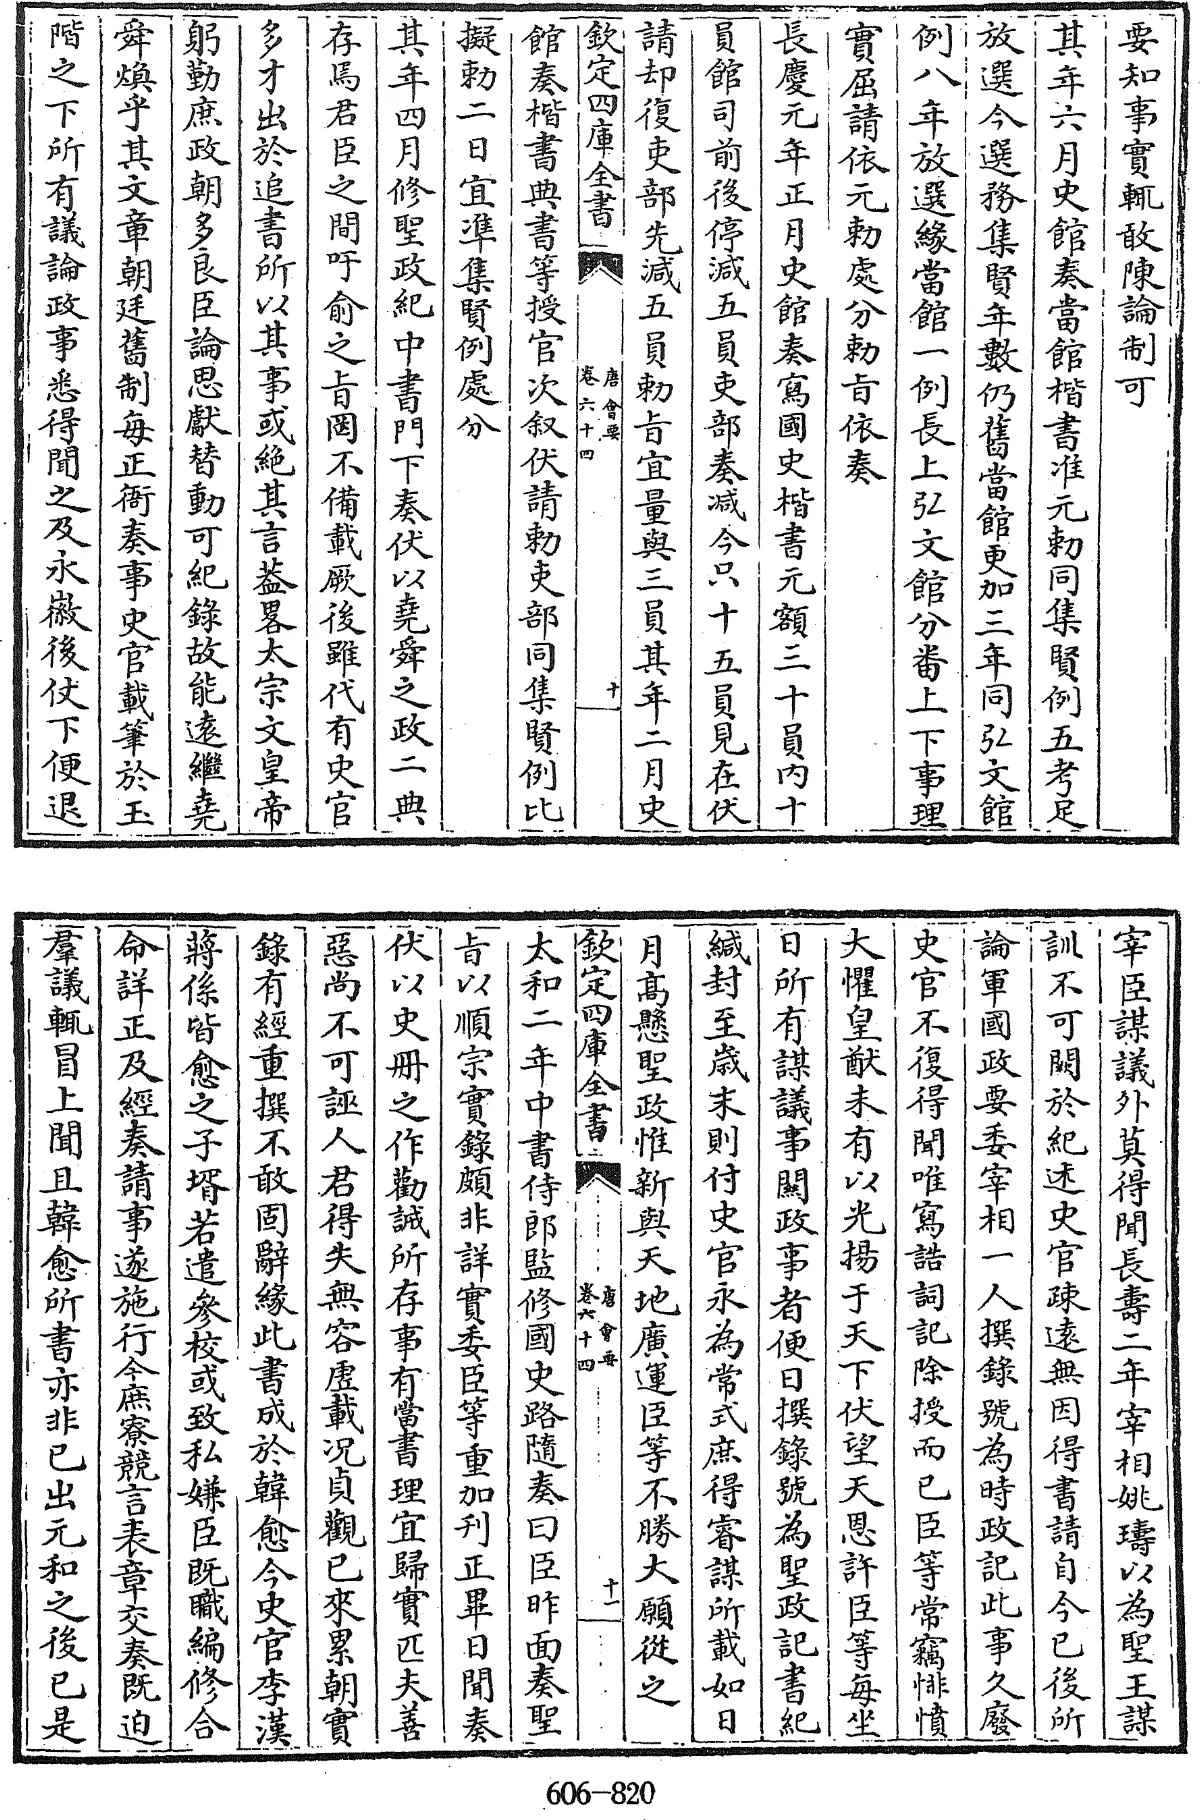 要知事實輒敢陳論制可
其年六月史館奏當館楷書准元勅同集賢例五考足
放選今選務集賢年數仍舊當館更加三年同弘文館
例八年放選緣當館一例長上弘文館分番上下事理
實屈請依元勅處分勅旨依奏
長慶元年正月史館奏寫國史楷書元額三十員内十
員館司前後停減五員吏部奏减今只十五員見在伏
請却復吏部先減五員勅旨宜量與三員其年二月史
欽定四庫全書
唐會要
卷六十四
十
館奏楷書典書等授官次叙伏請勅吏部同集賢例比
擬勅二日宜準集賢例處分
其年四月修聖政紀中書門下奏伏以堯舜之政二典
存焉君臣之間吁俞之旨罔不備載厥後雖代有史官
多才出於追書所以其事或絶其言葢畧太宗文皇帝
躬勤庶政朝多良臣論思獻替動可紀錄故能逺繼堯
舜煥乎其文章朝廷舊制每正衙奏事史官載筆於玉
階之下所有議論政事悉得聞之及永徽後仗下便退
宰臣謀議外莫得聞長壽二年宰相姚璹以為聖王謀
訓不可闕於紀述史官疎遠無因得書請自今已後所
論軍國政要委宰相一人撰錄號為時政記此事久廢
史官不復得聞唯寫誥詞記除授而已臣等常竊悱憤
大懼皇猷未有以光揚于天下伏望天恩許臣等每坐
日所有謀議事關政事者便日撰錄號為聖政記書紀
緘封至歲末則付史官永為常式庶得睿謀所載如日
月高懸聖政惟新與天地廣運臣等不勝大願從之
欽定四庫全書
唐會要
卷六十四
十一
太和二年中書侍郎監修國史路隨奏曰臣昨面奏聖
旨以順宗實錄頗非詳實委臣等重加刋正畢日聞奏
伏以史册之作勸誡所存事有當書理宜歸實匹夫善
惡尚不可誣人君得失無容虛載况貞觀已來累朝實
錄有經重撰不敢固辭緣此書成於韓愈今史官李漢
蔣係皆愈之子壻若遣參校或致私嫌臣既職編修合
命詳正及經奏請事遂施行今庶寮競言表章交奏既迫
羣議輒冒上聞且韓愈所書亦非已出元和之後已是
606-820